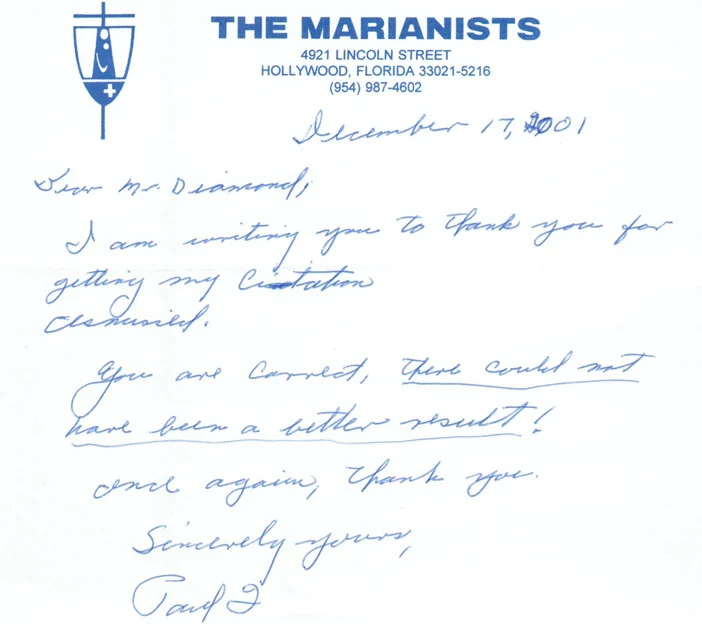 THE MARIANISTS
4921 LINCOLN STREET
HOLLYWOOD, FLORIDA 33021-5216
(954) 987-4602
December 17, 2001
Dear Mr. Diamond,
I am writing you to thank you for
getting my Citation
dismissed.
You are correct, there could not
have been a better result!
once again, thank you.
Sincerely yours,
Paul